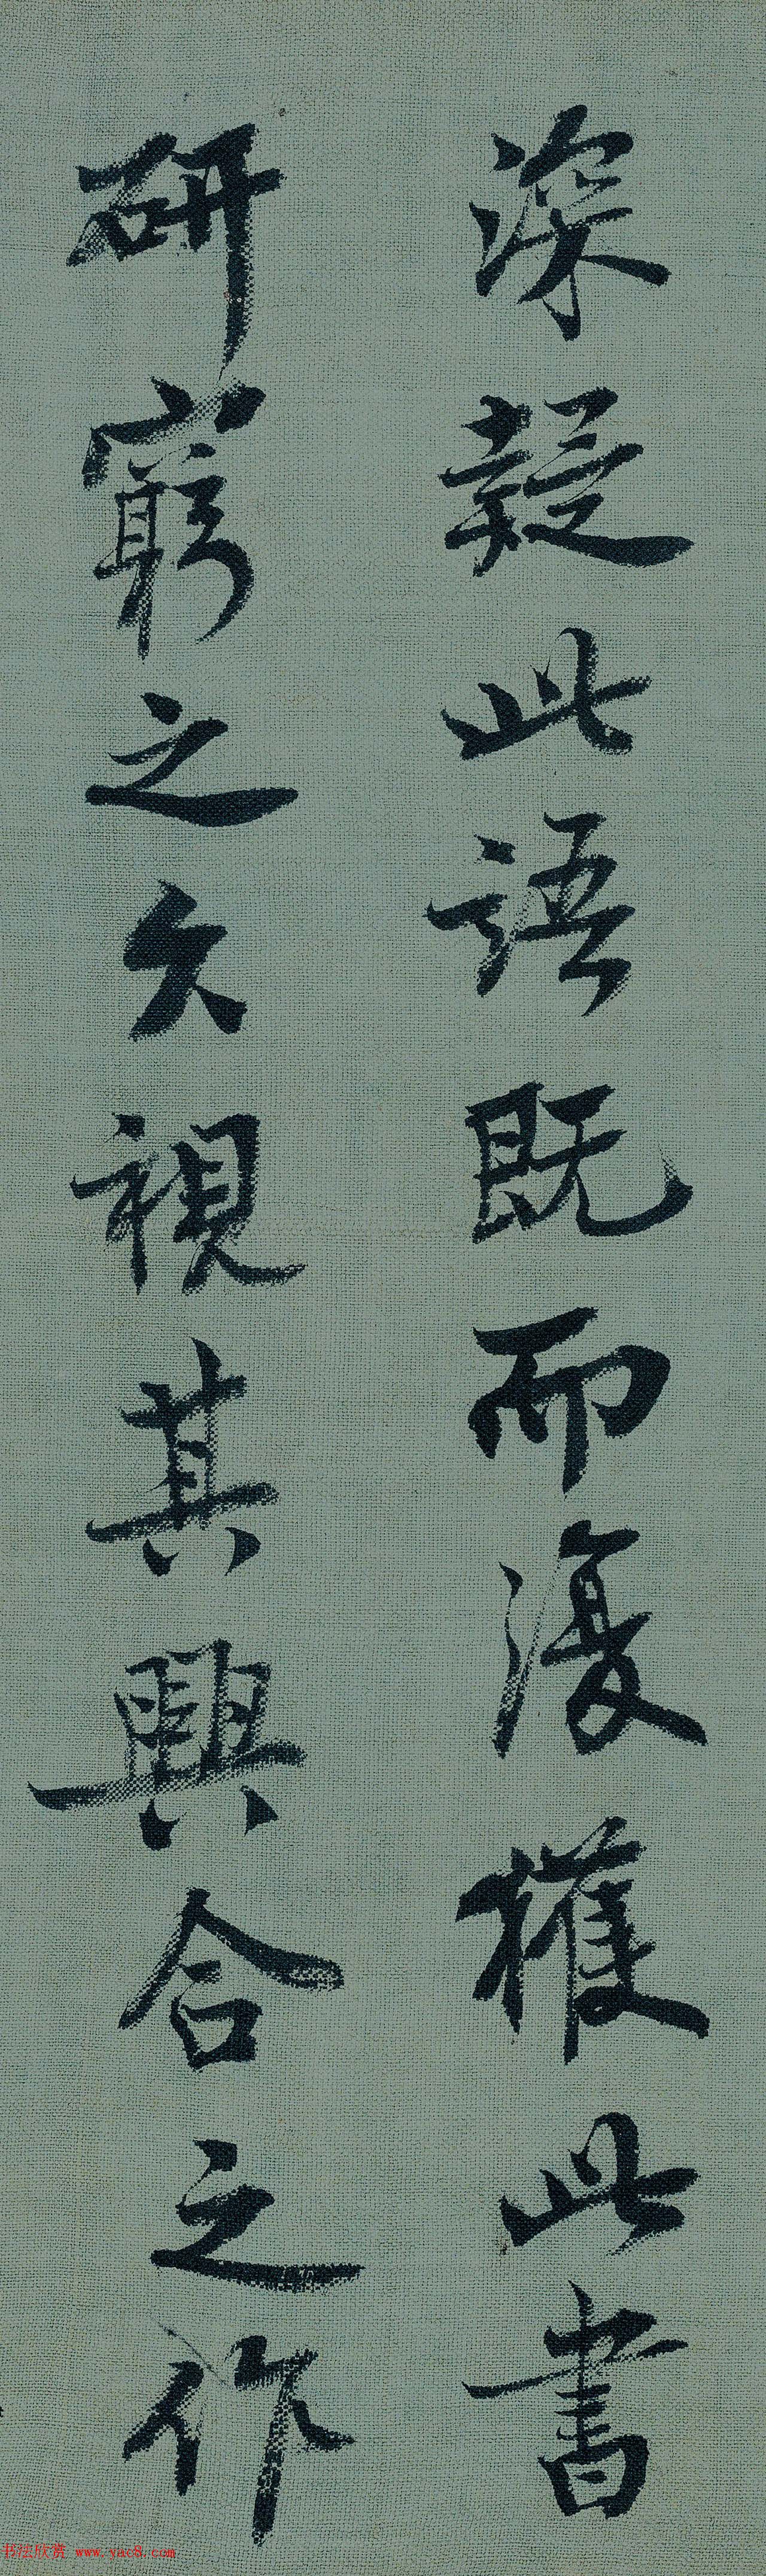 深疑此語既而復獲此書
研窮之久視其興合之作
书法欣赏 www.yac8.com